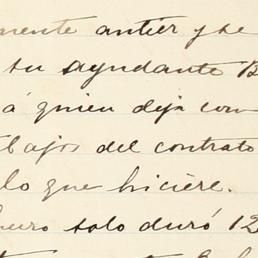 mente antier y se
su ayudante B
á quien deja con
bajos del contrato
lo que hiciere.
pero solo duró 12